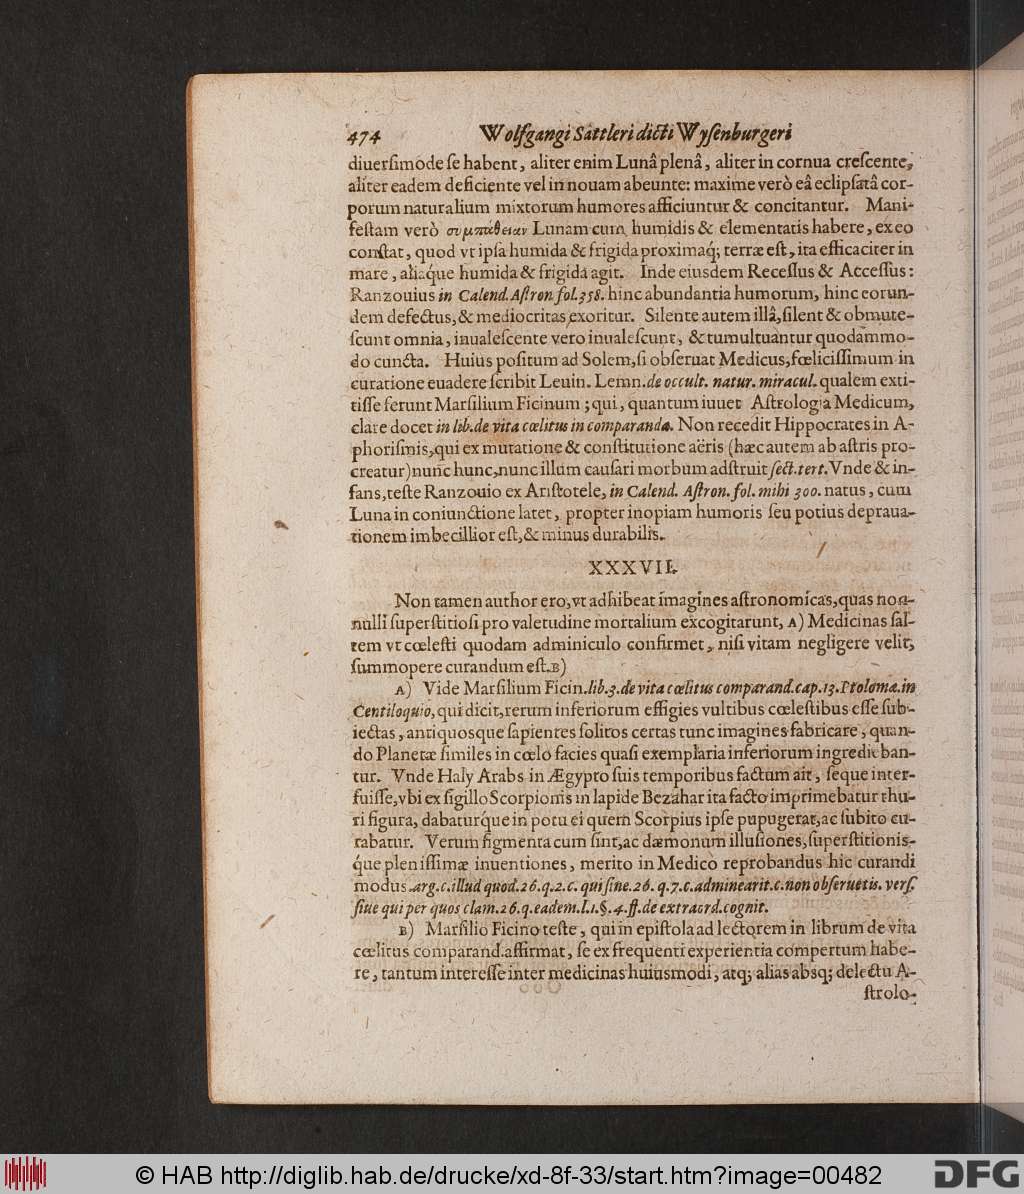 474 Wolfgangi Sattleri dicti Wysenburgeri
diuersimode se habent, aliter enim Lunâ plenâ, aliter in cornua crescente,
aliter eadem deficiente vel in nouam abeunte: maxime verò eâ eclipsatâ cor-
porum naturalium mixtorum humores afficiuntur & concitantur. Mani-
festam verò συμπάθειαν Lunam cum humidis & elementatis habere, ex eo
constat, quod vt ipsa humida & frigida proximaq́; terræ est, ita efficaciter in
mare, aliaque humida & frigida agit. Inde eiusdem Recessus & Accessus:
Ranzouius in Calend. Astron. fol. 358. hinc abundantia humorum, hinc eorun-
dem defectus, & mediocritas exoritur. Silente autem illâ, silent & obmute-
scunt omnia, inualescente vero inualescunt, & tumultuantur quodammo-
do cuncta. Huius positum ad Solem, si obseruat Medicus, fœlicissimum in
curatione euadere scribit Leuin. Lemn. de occult. natur. miracul. qualem exti-
tisse ferunt Marsilium Ficinum; qui, quantum iuuet Astrologia Medicum,
clare docet in lib. de vita cœlitus in comparanda. Non recedit Hippocrates in A-
phorismis, qui ex mutatione & constitutione aëris (hæc autem ab astris pro-
creatur) nunc hunc, nunc illum causari morbum adstruit sect. tert. Vnde & in-
fans, teste Ranzouio ex Aristotele, in Calend. Astron. fol. mihi 300. natus, cum
Luna in coniunctione latet, propter inopiam humoris seu potius depraua-
tionem imbecillior est, & minus durabilis.
XXXVII.
Non tamen author ero, vt adhibeat imagines astronomicas, quas non-
nulli superstitiosi pro valetudine mortalium excogitarunt, A) Medicinas sal-
tem vt cœlesti quodam adminiculo confirmet, nisi vitam negligere velit,
summopere curandum est. B)
A) Vide Marsilium Ficin. lib. 3. de vita cœlitus comparand. cap. 13. Ptolomæ. in
Centiloquio, qui dicit, rerum inferiorum effigies vultibus cœlestibus esse sub-
iectas, antiquosque sapientes solitos certas tunc imagines fabricare, quan-
do Planetæ similes in cœlo facies quasi exemplaria inferiorum ingredieban-
tur. Vnde Haly Arabs in Ægypto suis temporibus factum ait, seque inter-
fuisse, vbi ex sigillo Scorpionis in lapide Bezahar ita facto imprimebatur thu-
ri figura, dabaturque in potu ei quem Scorpius ipse pupugerat, ac subito cu-
rabatur. Verum figmenta cum sint, ac dæmonum illusiones, superstitionis-
que plenissimæ inuentiones, merito in Medico reprobandus hic curandi
modus. arg. c. illud quod. 26. q. 2. c. qui sine. 26. q. 7. c. adminearit. c. non obseruetis. vers.
siue qui per quos clam. 26. q. eadem. l. 1. §. 4. ff. de extraord. cognit.
B) Marsilio Ficino teste, qui in epistola ad lectorem in librum de vita
cœlitus comparand. affirmat, se ex frequenti experientia compertum habe-
re, tantum interesse inter medicinas huiusmodi, atq; alias absq; delectu A-
strolo-
© HAB http://diglib.hab.de/drucke/xd-8f-33/start.htm?image=00482
DFG